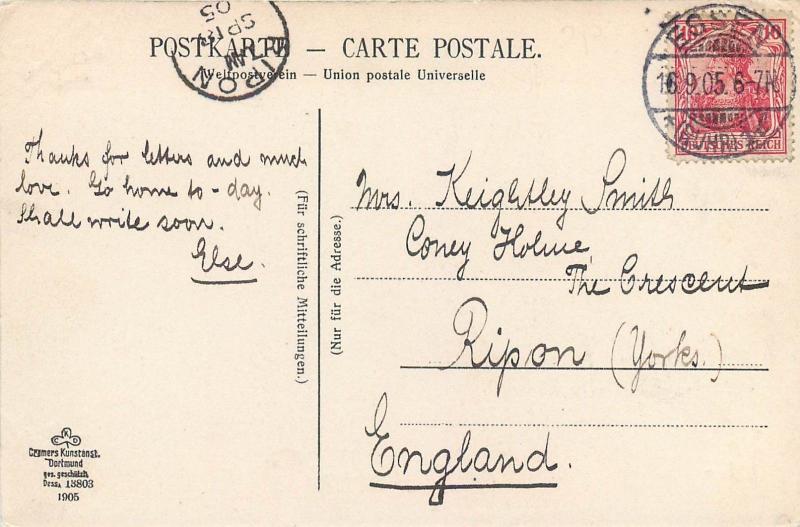 POSTKARTE — CARTE POSTALE.
Weltpostverein — Union postale Universelle
RIPON
SP 18
05
AM
ESSEN
16.9.05. 6-7N
10
DEUTSCHES REICH
Thanks for letters and much
love. Go home to-day.
Shall write soon.
Else.
(Für schriftliche Mitteilungen.)
(Nur für die Adresse.)
Mrs. Keightley Smith
Coney Holme,
The Crescent
Ripon (Yorks.)
England.
CKD
Cramers Kunstanst.
Dortmund
ges. geschützt
Dess. 13803
1905